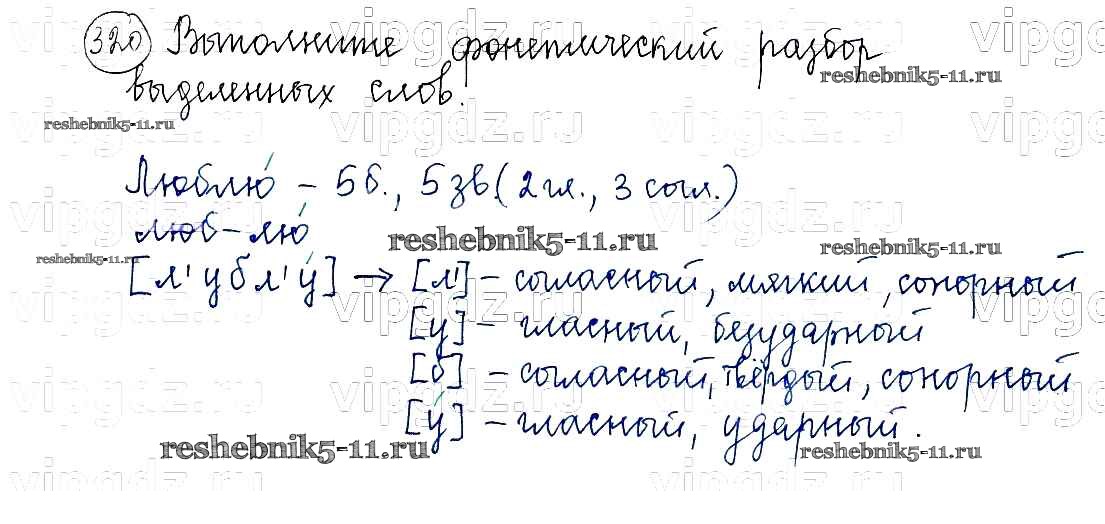 320 Выполните фонетический разбор
выделенных слов.
reshebnik5-11.ru
reshebnik5-11.ru
Люблю́ – 5 б., 5 зв. (2 гл., 3 согл.)
люб-лю́
reshebnik5-11.ru
reshebnik5-11.ru
reshebnik5-11.ru
[л'убл'у́] → [л'] – согласный, мягкий, сонорный
[у] – гласный, безударный
[б] – согласный, твёрдый, сонорный
[у́] – гласный, ударный.
reshebnik5-11.ru
reshebnik5-11.ru
vipgdz.ru